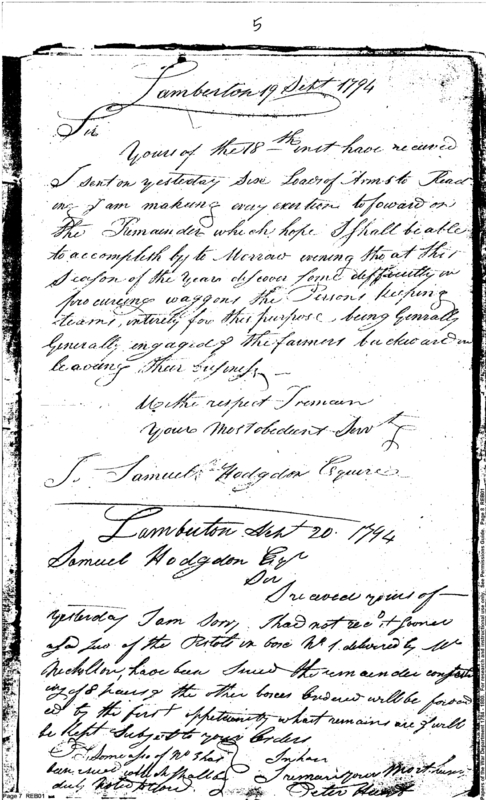 5
Lamberton 19 Sept 1794
Sir
Yours of the 18th inst have received
I sent on yesterday Six Loads of Arms to Read
ing I am making every exertion to forward on
the Remainder which hope I shall be able
to accomplish by to Morrow evening tho at this
Season of the Year discover some difficulty in
procuring waggons the Persons, keeping
teams, intirely for this purpose being Genrally
Generally engaged & the farmers backward in
leaving their business
With respect I remain
Your Most obedient Servt
To Samuel Hodgdon Esquire
Lamberton Sept 20. 1794
Samuel Hodgdon Esqr
Sir
I received yours of
yesterday I am Sorry I had not recd it sooner
as two of the Pistols in box No 1. delivered by Mr
have been Issued the remainder consist
ing of 8 pairs & the other boxes Ordered will be forward
ed by the first oppertunity what remains are & will
be kept Subject to your Orders
Some also of No 3 has
been issued which shall be
duly noted
I remain your Most hum
Peter Hunt
Page 7 REB01